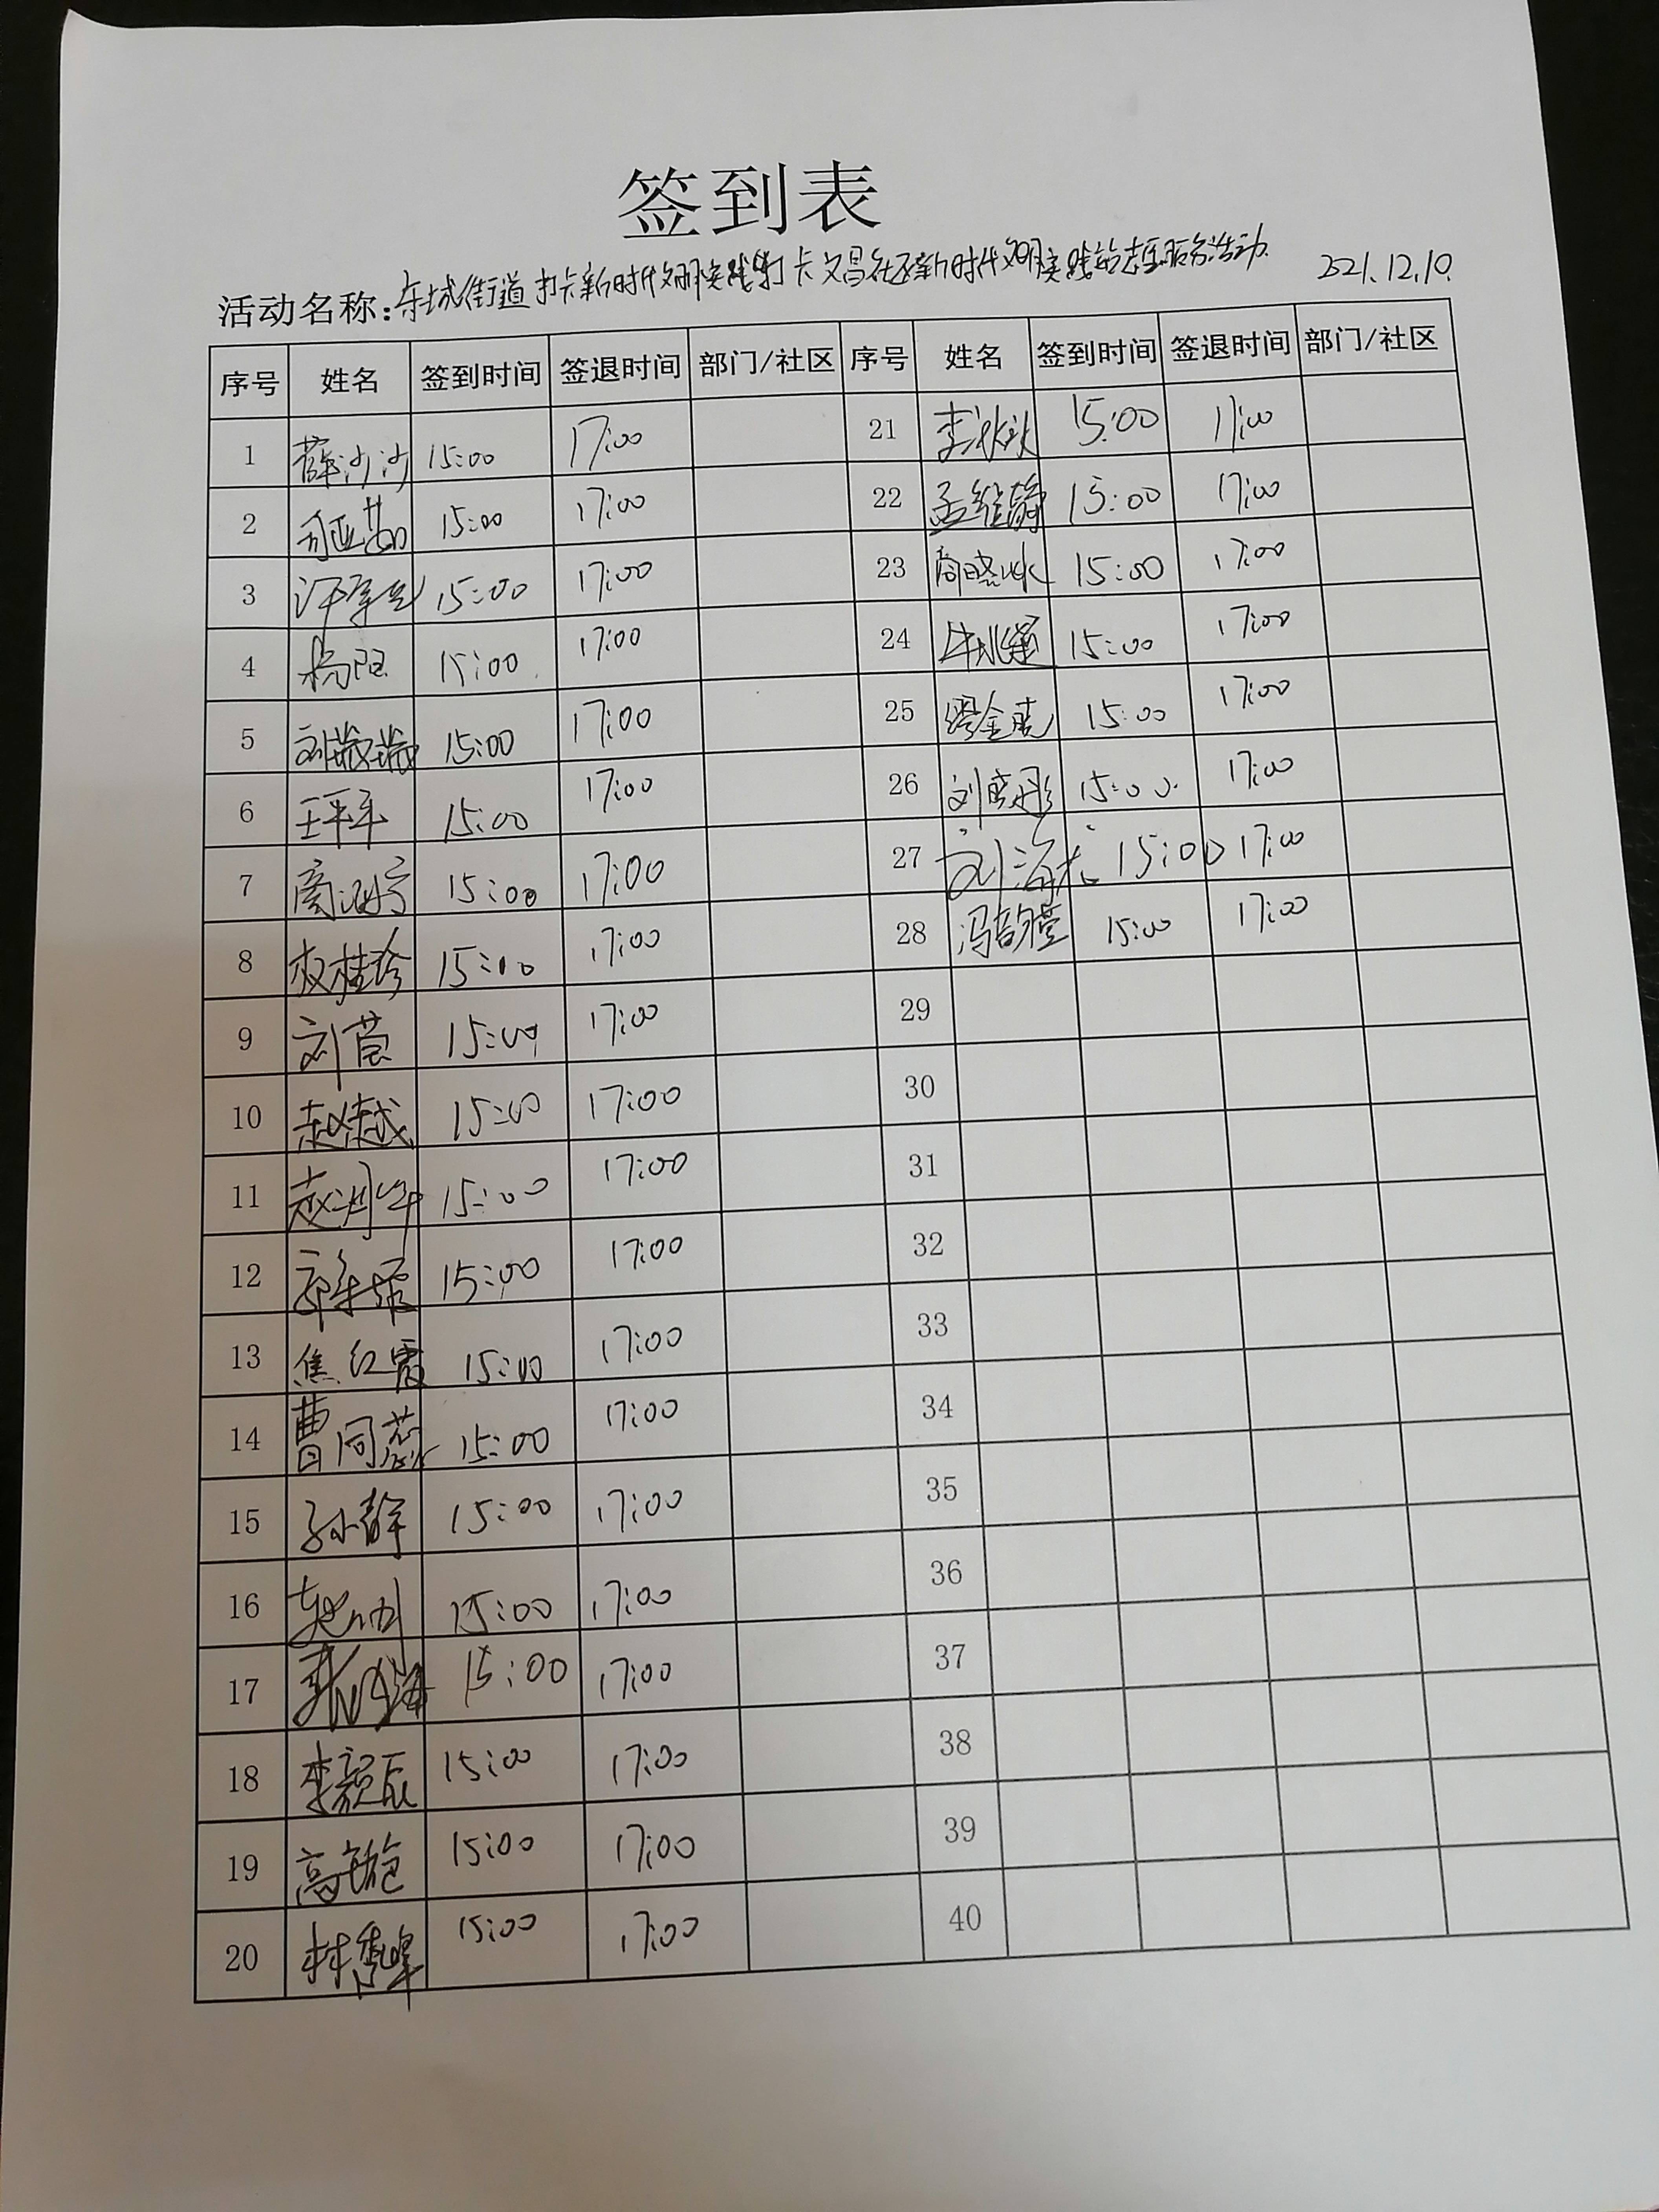 签到表
活动名称：东城街道打卡新时代文明实践“打卡文昌社区新时代文明实践站志愿服务活动 2021.12.10.
序号 姓名 签到时间 签退时间 部门/社区 序号 姓名 签到时间 签退时间 部门/社区
1 薛沙沙 15:00 17:00 21 李秋秋 15:00 17:00
2 15:00 17:00 22 孟维静 15:00 17:00
3 15:00 17:00 23 商晓冰 15:00 17:00
4 杨阳 15:00 17:00 24 15:00 17:00
5 刘瑞瑞 15:00 17:00 25 缪金虎 15:00 17:00
6 王平平 15:00 17:00 26 刘彦彤 15:00 17:00
7 15:00 17:00 27 刘海龙 15:00 17:00
8 权桂珍 15:00 17:00 28 冯韵莹 15:00 17:00
9 刘莹 15:00 17:00 29
10 赵越 15:00 17:00 30
11 15:00 17:00 31
12 15:00 17:00 32
13 焦红霞 15:00 17:00 33
14 曹同蕊 15:00 17:00 34
15 孙静 15:00 17:00 35
16 15:00 17:00 36
17 15:00 17:00 37
18 李颜辰 15:00 17:00 38
19 15:00 17:00 39
20 林秀峰 15:00 17:00 40